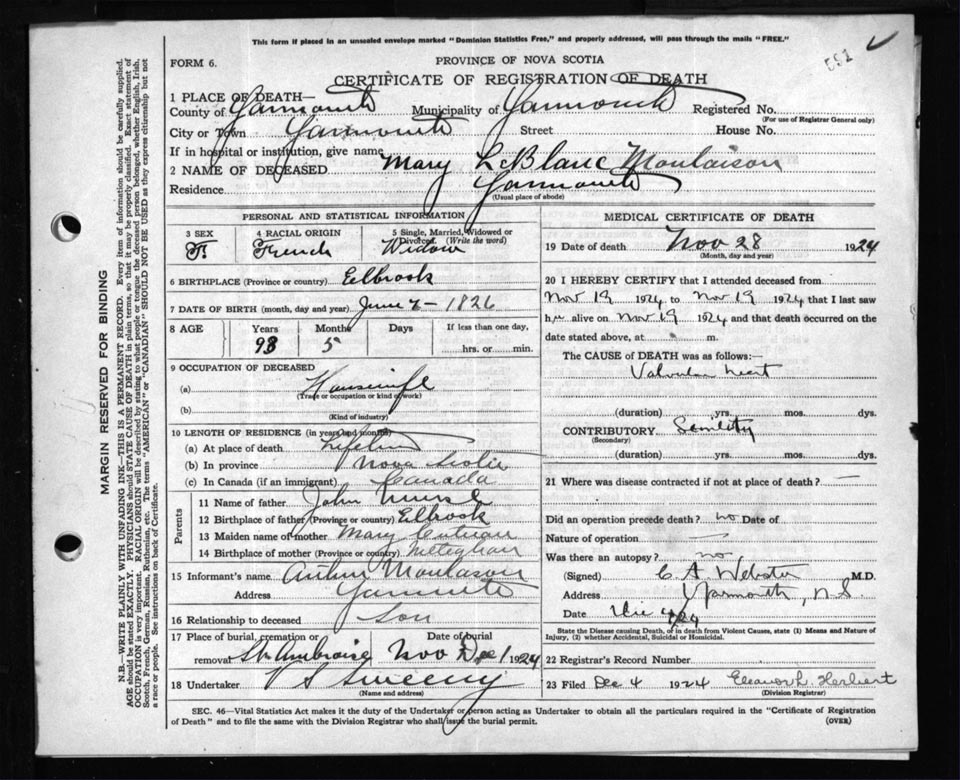 This form if placed in an unsealed envelope marked "Dominion Statistics Free," and properly addressed, will pass through the mails "FREE."
FORM 6.
PROVINCE OF NOVA SCOTIA
CERTIFICATE OF REGISTRATION OF DEATH
1 PLACE OF DEATH—
County of Yarmouth Municipality of Yarmouth Registered No.
(For use of Registrar General only)
City or Town Yarmouth Street House No.
If in hospital or institution, give name
2 NAME OF DECEASED Mary LeBlanc Moulaison
Residence Yarmouth
(Usual place of abode)
PERSONAL AND STATISTICAL INFORMATION
3 SEX 4 RACIAL ORIGIN 5 Single, Married, Widowed or Divorced. (Write the word)
F. French Widow
6 BIRTHPLACE (Province or country) Eelbrook
7 DATE OF BIRTH (month, day and year) June 7 - 1826
8 AGE Years Months Days If less than one day,
98 5 hrs. or min.
9 OCCUPATION OF DECEASED
(a) Housewife
(Trade or occupation or kind of work)
(b)
(Kind of industry)
10 LENGTH OF RESIDENCE (in years and months)
(a) At place of death Lifetime
(b) In province Nova Scotia
(c) In Canada (if an immigrant) Canada
Parents
11 Name of father John
12 Birthplace of father (Province or country) Eelbrook
13 Maiden name of mother Mary
14 Birthplace of mother (Province or country) Meteghan
15 Informant's name Arthur Moulaison
Address Yarmouth
16 Relationship to deceased Son
17 Place of burial, cremation or removal St Ambroise Date of burial Nov Dec 1 1924
18 Undertaker V S Sweeny
(Name and address)
MEDICAL CERTIFICATE OF DEATH
19 Date of death Nov 28 1924
(Month, day and year)
20 I HEREBY CERTIFY that I attended deceased from
Nov 19 1924 to Nov 19 1924 that I last saw
h alive on Nov 19 1924 and that death occurred on the
date stated above, at m.
The CAUSE of DEATH was as follows:—
Valvular heart
(duration) yrs. mos. dys.
CONTRIBUTORY Senility
(Secondary)
(duration) yrs. mos. dys.
21 Where was disease contracted if not at place of death? —
Did an operation precede death? no Date of
Nature of operation —
Was there an autopsy? no
(Signed) C A Webster M.D.
Address Yarmouth, N.S.
Date
State the Disease causing Death, or in death from Violent Causes, state (1) Means and Nature of
Injury, (2) whether Accidental, Suicidal or Homicidal.
22 Registrar's Record Number
23 Filed Dec 4 1924 Eleanor L. Herbert
(Division Registrar)
SEC. 46—Vital Statistics Act makes it the duty of the Undertaker or person acting as Undertaker to obtain all the particulars required in the "Certificate of Registration
of Death" and to file the same with the Division Registrar who shall issue the burial permit. (OVER)
MARGIN RESERVED FOR BINDING
N.B.—WRITE PLAINLY WITH UNFADING INK—THIS IS A PERMANENT RECORD. Every item of information should be carefully supplied.
AGE should be stated EXACTLY. PHYSICIANS should STATE CAUSE OF DEATH in plain terms, so that it may be properly classified. Exact statement of
OCCUPATION is very important. RACIAL ORIGIN will be described by stating to what people or tongue the deceased person belonged, whether English, Irish,
Scotch, French, German, Russian, Ruthenian, etc. The terms "AMERICAN" or "CANADIAN" SHOULD NOT BE USED as they express citizenship but not
a race or people. See instructions on back of Certificate.